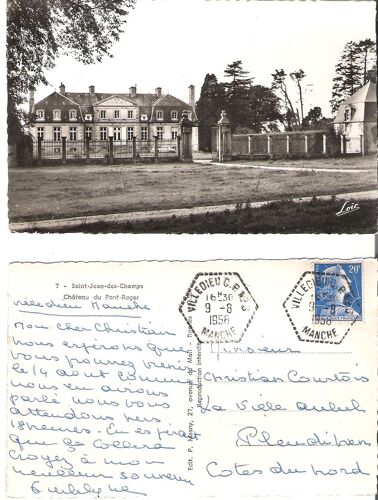 Loïc
7 - Saint-Jean-des-Champs
Château du Pont-Roger
Villedieu Manche
Mon cher Christian
nous espérons que
vous pourrez venir
le 14 août comme
nous en avions
parlé nous vous
attendons vers
18 heures. En espérant
que ça collera
croyez à mon
meilleur souvenir
Edit. P. Marny, 27, avenue de
Reproduction interdite
VILLEDIEU C.P. N°3
16H30
9-8
1958
MANCHE
VILLEDIEU C.P.
9-8
1958
MANCHE
20F
Monsieur
Christian Courtois
La Vieille
Pleudihen
Cotes du Nord